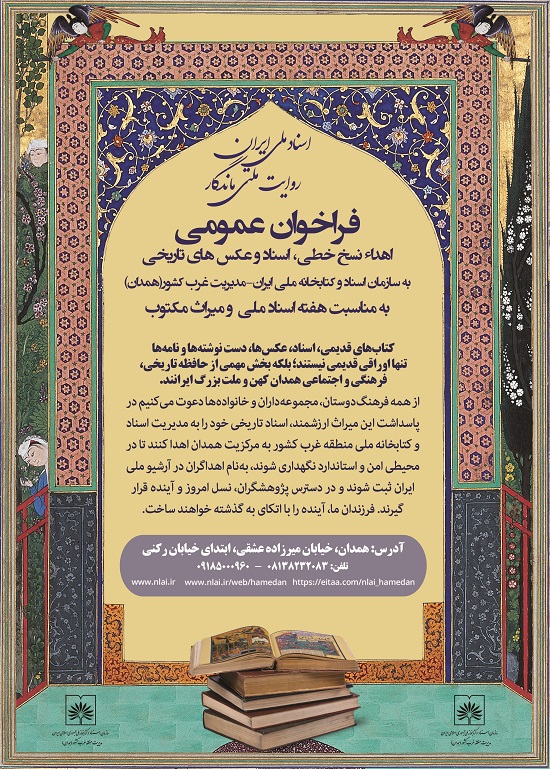 اسناد ملی ایران
روایت ملتی ماندگار
فراخوان عمومی
اهداء نسخ خطی، اسناد و عکس های تاریخی
به سازمان اسناد و کتابخانه ملی ایران-مدیریت غرب کشور(همدان)
به مناسبت هفته اسناد ملی و میراث مکتوب
کتاب‌های قدیمی، اسناد، عکس‌ها، دست نوشته‌ها و نامه‌ها
تنها اوراقی قدیمی نیستند؛ بلکه بخش مهمی از حافظه تاریخی،
فرهنگی و اجتماعی همدان کهن و ملت بزرگ ایرانند.
از همه فرهنگ‌دوستان، مجموعه‌داران و خانواده‌ها دعوت می‌کنیم در
پاسداشت این میراث ارزشمند، اسناد تاریخی خود را به مدیریت اسناد
و کتابخانه ملی منطقه غرب کشور به مرکزیت همدان اهدا کنند تا در
محیطی امن و استاندارد نگهداری شوند، به‌نام اهداگران در آرشیو ملی
ایران ثبت شوند و در دسترس پژوهشگران، نسل امروز و آینده قرار
گیرند. فرزندان ما، آینده را با اتکای به گذشته خواهند ساخت.
آدرس: همدان، خیابان میرزاده عشقی، ابتدای خیابان رکنی
تلفن: ۰۸۱۳۸۲۳۲۰۸۳ - ۰۹۱۸۵۰۰۰۹۶۰
www.nlai.ir www.nlai.ir/web/hamedan https://eitaa.com/nlai_hamedan
سازمان اسناد و کتابخانه ملی جمهوری اسلامی ایران
مدیریت منطقه غرب کشور (همدان)
سازمان اسناد و کتابخانه ملی جمهوری اسلامی ایران
مدیریت منطقه غرب کشور (همدان)